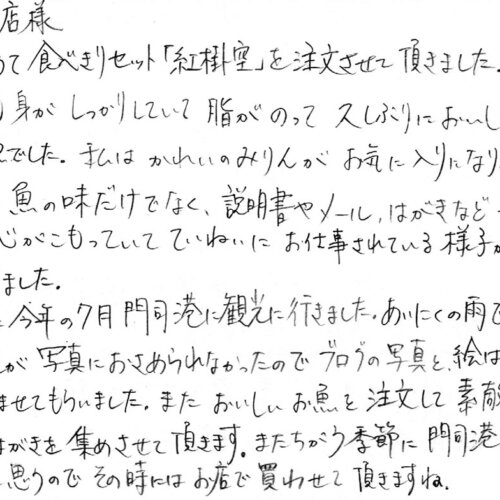 店様
て食べきりセット「紅掛空」を注文させて頂きました。
身がしっかりしていて 脂がのって 久しぶりにおいし
でした。私は かれいのみりんが お気に入りになり
魚の味だけでなく、説明書やメール、はがきなど
心がこもっていて ていねいに お仕事されている様子が
ました。
今年の7月 門司港に観光に行きました。あいにくの雨で
が 写真におさめられなかったので ブログの写真と、絵は
ませてもらいました。また おいしいお魚を注文して 素敵
はがきを集めさせて頂きます。またちがう季節に 門司港
思うので その時には お店で買わせて頂きますね。